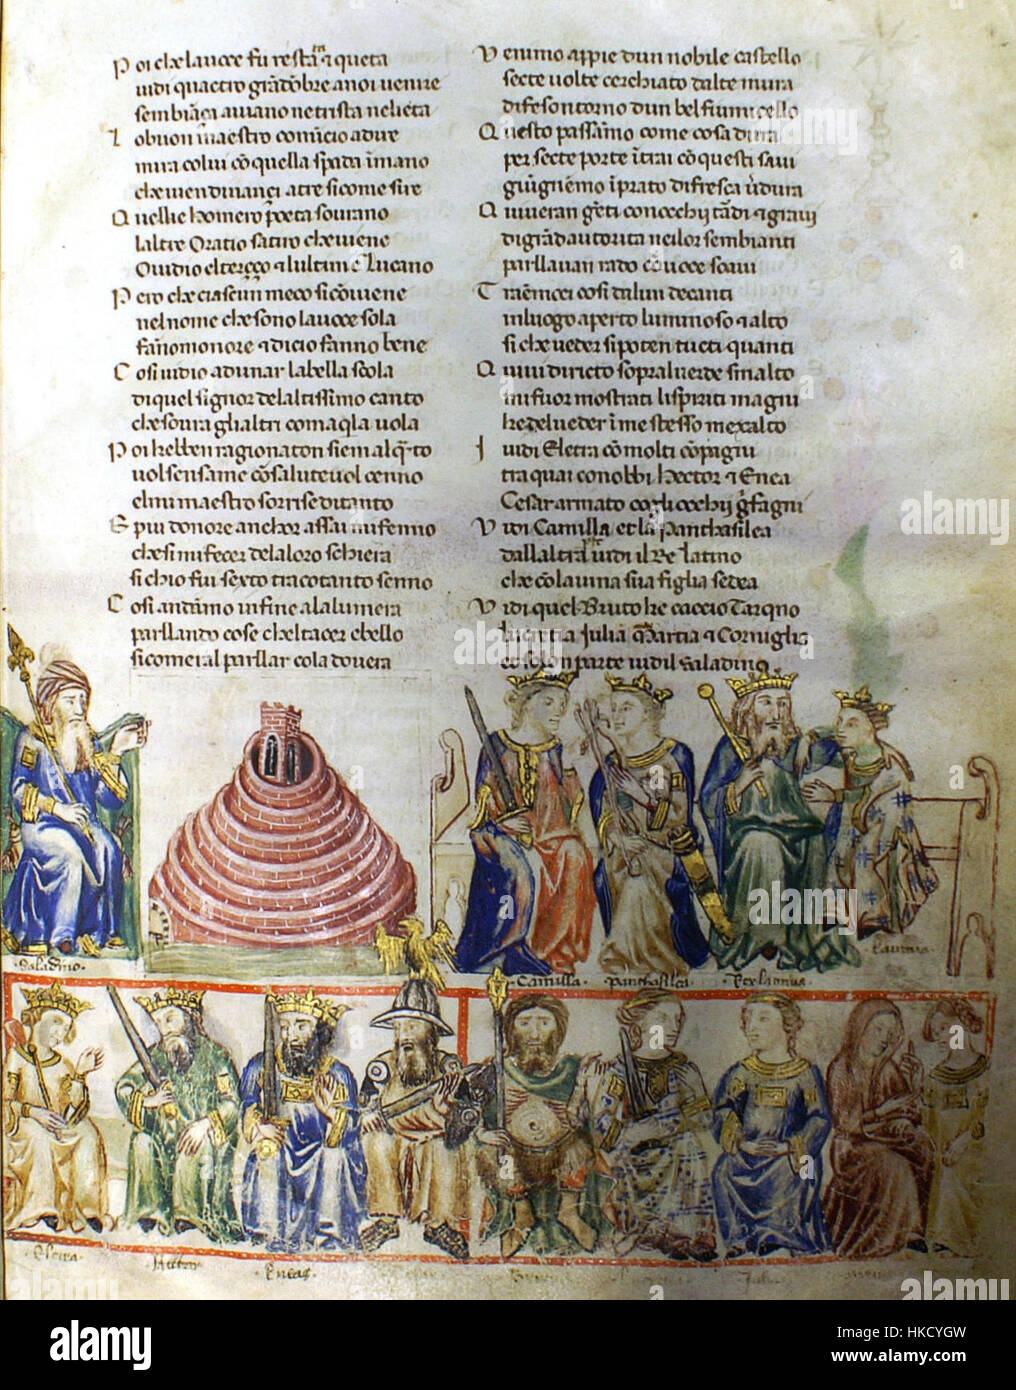 Poi che la voce fu restata ⁊ queta
vidi quactro grādōbre anoi venire
sembiāça avviano ne trista ne lieta
Lo buon maestro comīcio a dire
mira colui cō quella spada īmano
che vien dinanci atre si come sire
Quelli e homero poeta sovrano
laltre Oratio satiro che viene
Ovidio el terço ⁊ lultimo e Lucano
Pero che ciascun meco si cōviene
nel nome che sono la voce sola
fāno monore ⁊ dicio fanno bene
Cosi vidio adunar la bella scola
di quel signor de laltissimo canto
che sovra gli altri com aqla vola
Poi hebber ragionaton siem alq̄to
volsensa me cō salutevol cenno
el mi maestro sorrise di tanto
E piu donore anchor assai mi fenno
chesi mi fecer de la loro schiera
si chio fui sexto tra cotanto senno
Cosi andāmo infine a la lumera
parllando cose chel tacer e bello
si come ral parllar cola dovera
Venimo appie dun nobile castello
secte volte cerchiato dalte mura
difeso ntorno dun bel fiumicello
Questo passāmo come cosa dura
per secte porte ītrai cō questi savi
giūgnēmo ī prato di fresca v̄dura
Qui veran gēti con occhij tādi ⁊ gravij
di grād autorita nei lor sembianti
parllavan rado cō voce soavi
Traēmci cosi dalun de canti
in luogo aperto luminoso ⁊ alto
si che veder si poten tucti quanti
Quivi diricto sopral verde smalto
mi fuor mostrati li spiriti magni
he del veder ī me stesso mexalto
I vidi Eletra cō molti cōpagni
tra quai conobbi hector ⁊ Enea
Cesar armato cogli occhij g̃fagni
Vidi Camilla et la Panthasilea
dall altra pte vidi il Re latino
che cō lavina sua figlia sedea
Vidi quel Bruto he caccio Tarqno
lucretia Julia Martia ⁊ Corniglia
e solo n parte vidi l Saladino
Saladino
Camilla
Panthasilea
Rex latinus
Lavinia
Eletra
Hector
Eneas
alamy
alamy stock photo
HKCYGW
www.alamy.com